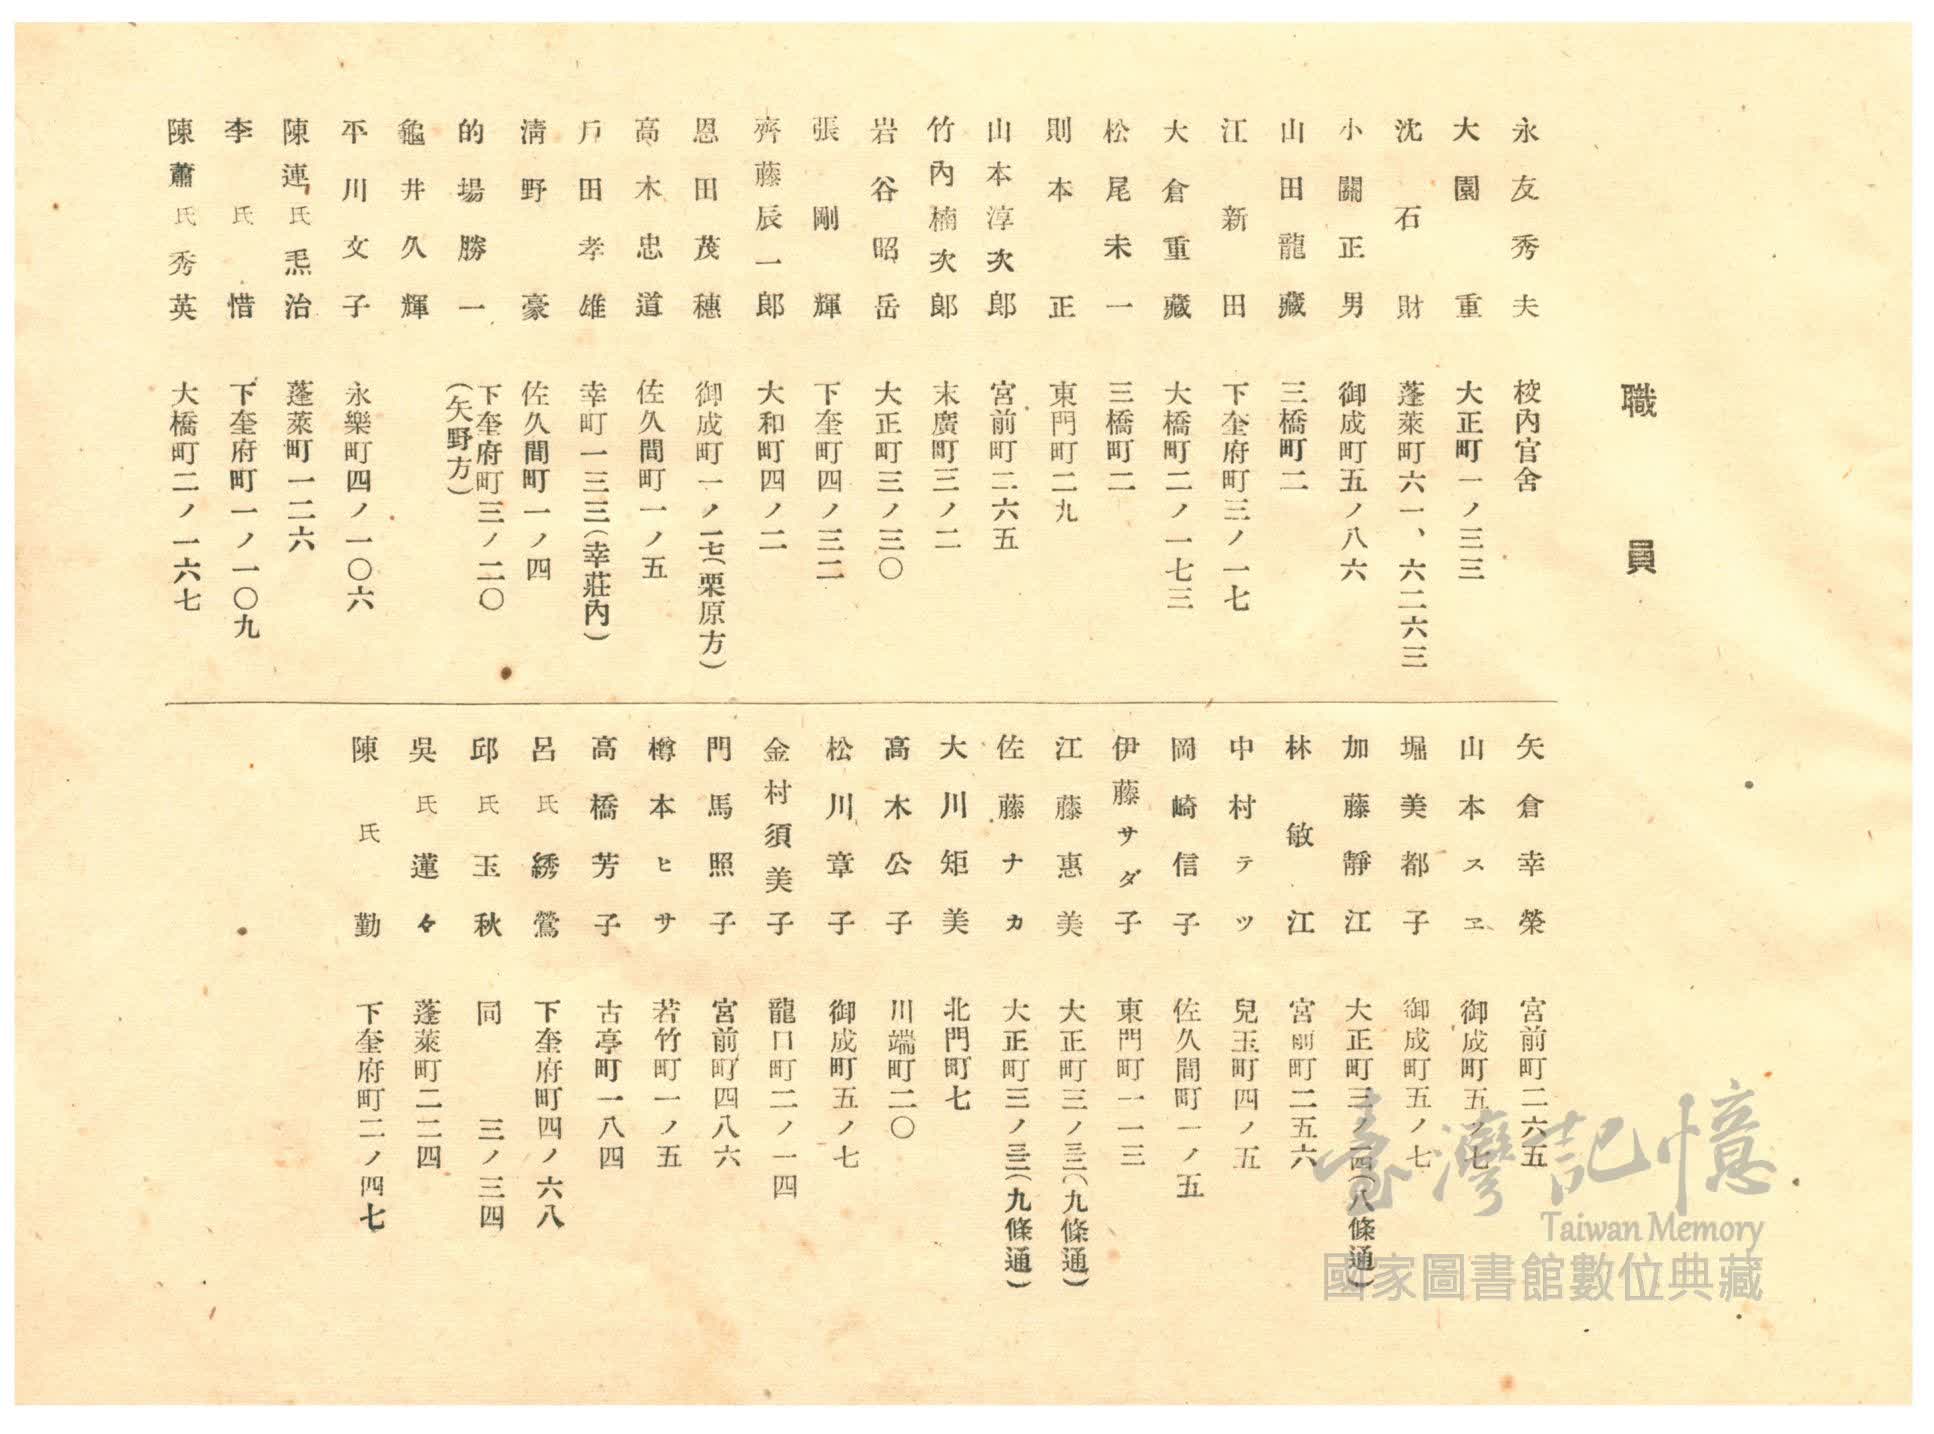 職員
永友秀夫 校內官舍
大園重 大正町一ノ三三
沈石財 蓬萊町六一、六二六三
小關正男 御成町五ノ八六
山田龍藏 三橋町二
江新田 下奎府町三ノ一七
大倉重藏 大橋町二ノ一七三
松尾末一 三橋町二
則本正 東門町二九
山本淳次郎 宮前町二六五
竹內楠次郎 末廣町三ノ二
岩谷昭岳 大正町三ノ三〇
張剛輝 下奎町四ノ三二
齊藤辰一郎 大和町四ノ二
恩田茂穗 御成町一ノ一七(栗原方)
高木忠道 佐久間町一ノ五
戶田孝雄 幸町一三三(幸莊內)
淸野豪 佐久間町一ノ四
的場勝一 下奎府町三ノ二〇
(矢野方)
龜井久輝
平川文子 永樂町四ノ一〇六
陳連氏炁治 蓬萊町一二六
李氏惜 下奎府町一ノ一〇九
陳蕭氏秀英 大橋町二ノ一六七
矢倉幸榮 宮前町二六五
山本スヱ 御成町五ノ七
堀美都子 御成町五ノ七
加藤靜江 大正町三ノ四(八條通)
林敏江 宮前町二五六
中村テツ 兒玉町四ノ五
岡崎信子 佐久間町一ノ五
伊藤サダ子 東門町一一三
江藤惠美 大正町三ノ三二(九條通)
佐藤ナカ 大正町三ノ三二(九條通)
大川矩美 北門町七
高木公子 川端町二〇
松川章子 御成町五ノ七
金村須美子 龍口町二ノ一四
門馬照子 宮前町四八六
樽本ヒサ 若竹町一ノ五
高橋芳子 古亭町一八四
呂氏綉鶯 下奎府町四ノ六八
邱氏玉秋 同 三ノ三四
吳氏蓮々 蓬萊町二二四
陳氏勤 下奎府町二ノ四七
臺灣記憶
Taiwan Memory
國家圖書館數位典藏